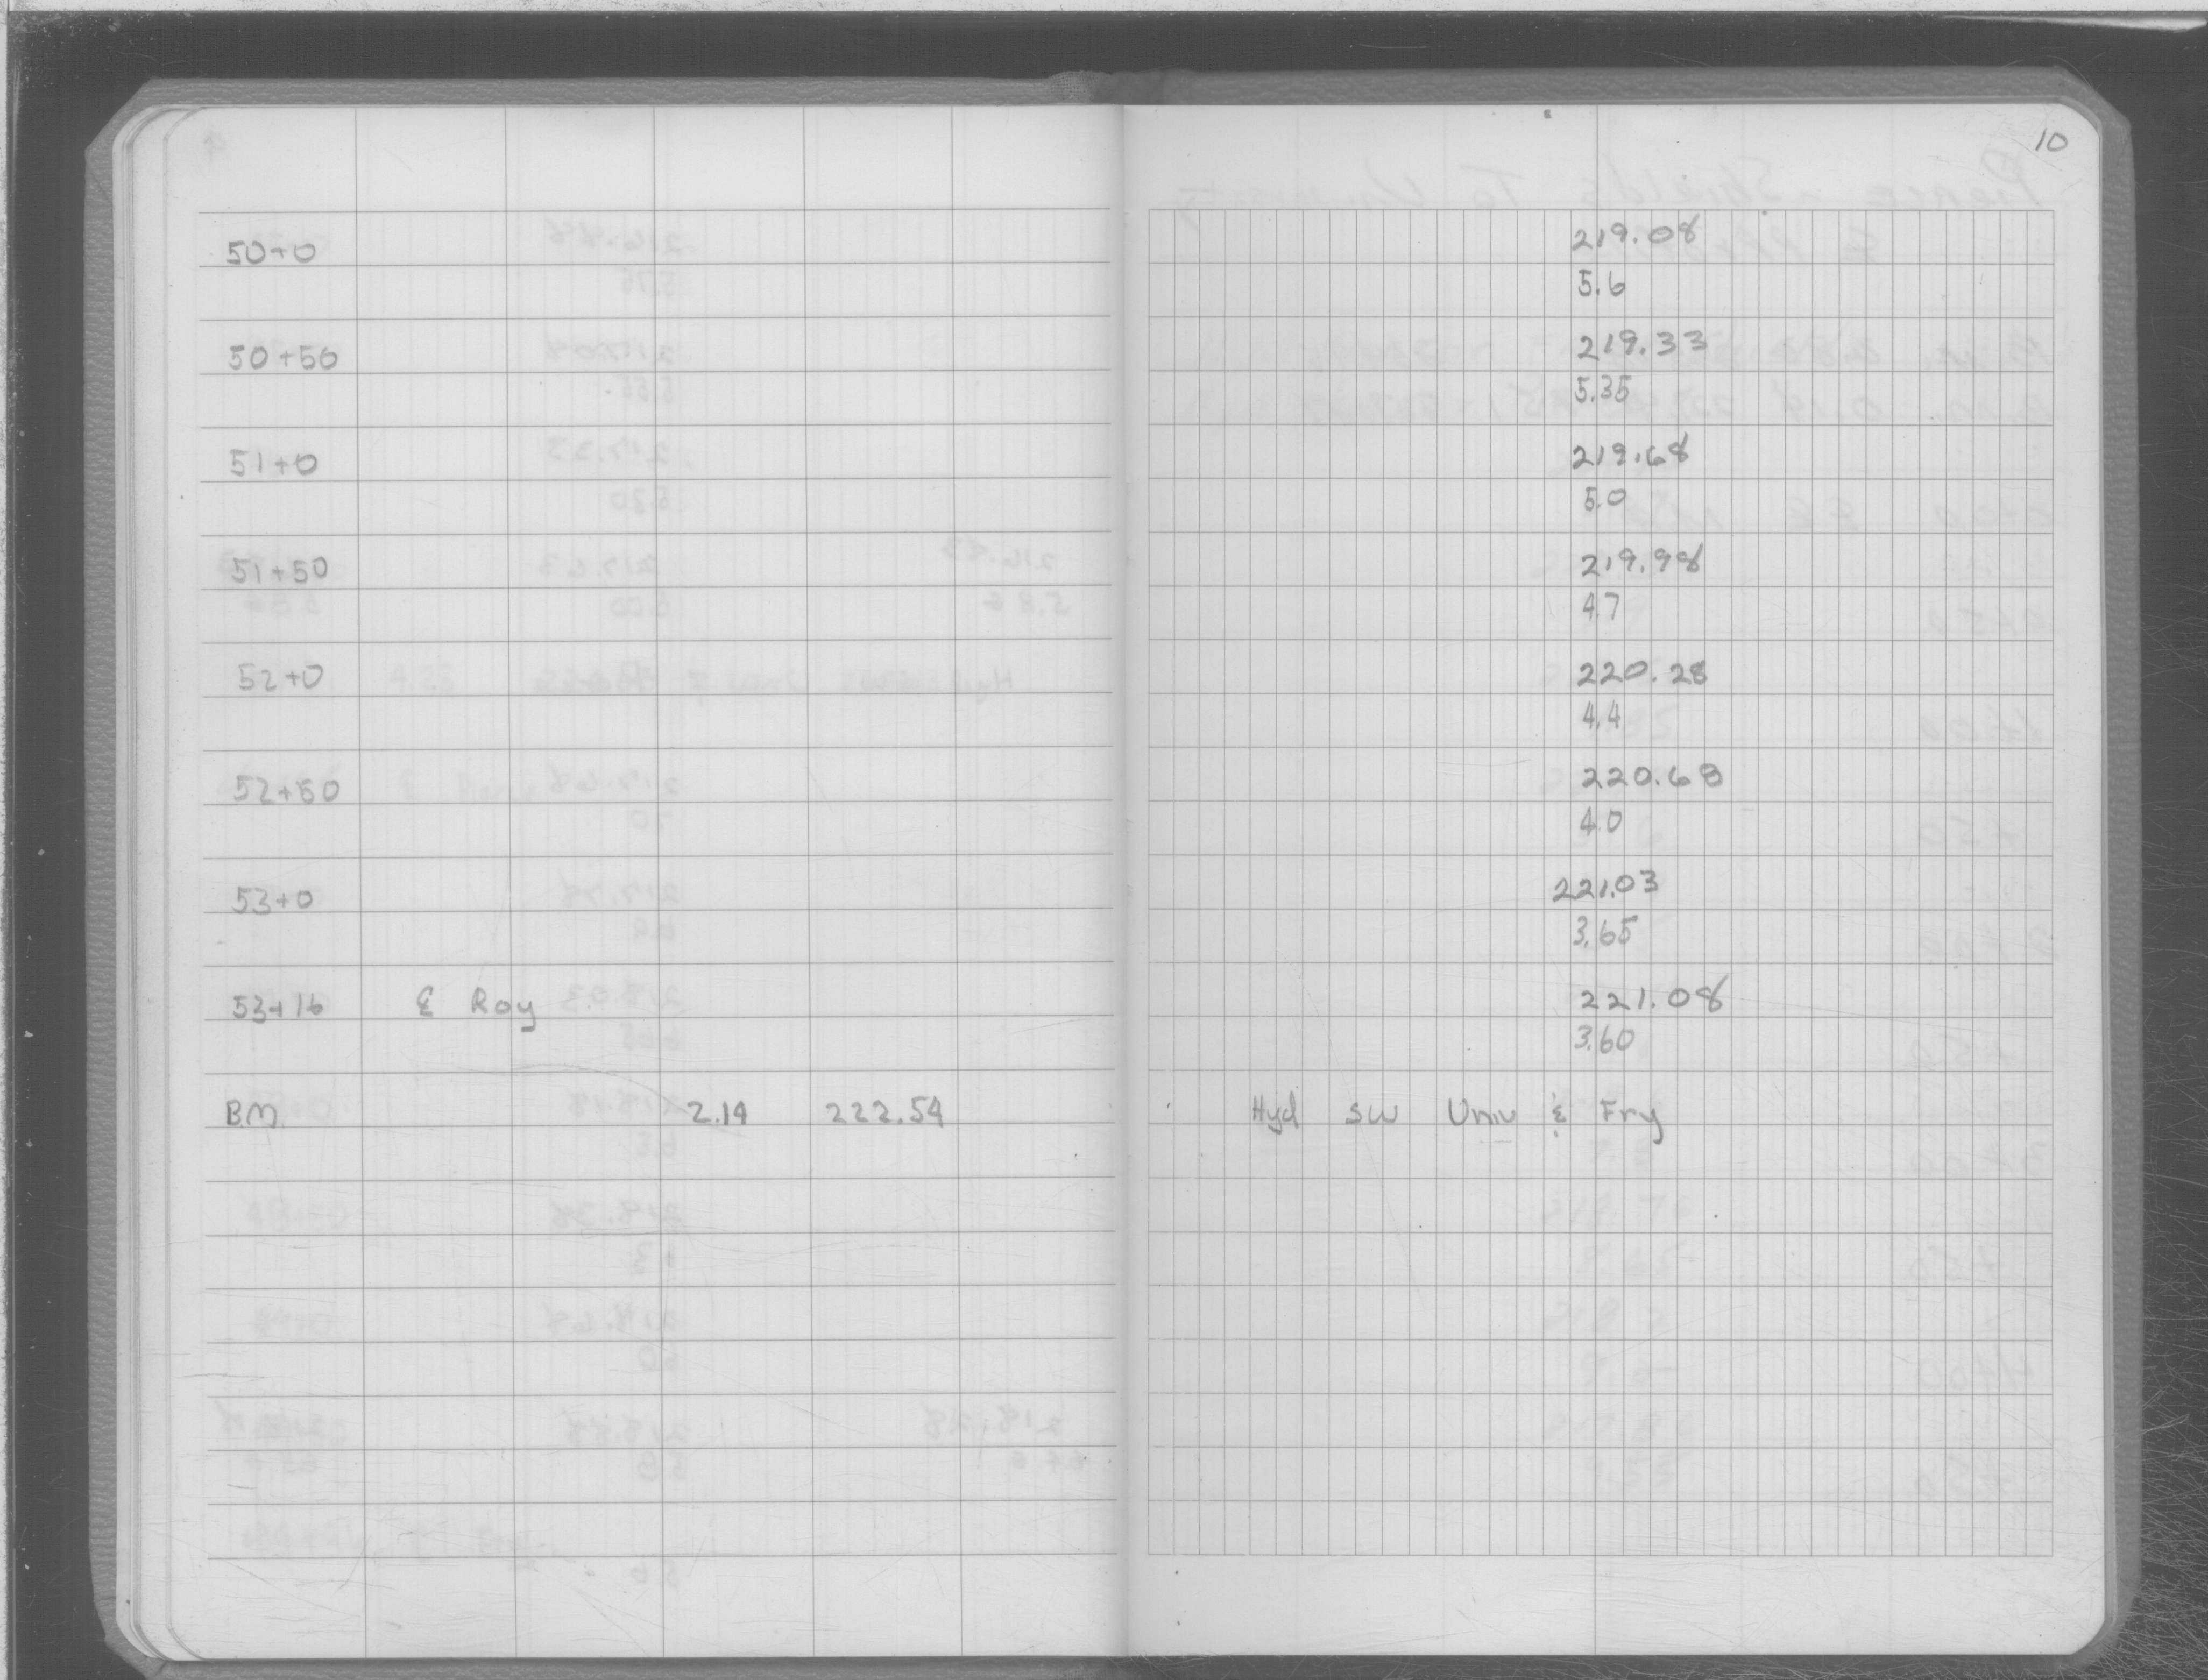 10
50+0 219.08
5.6
50+50 219.33
5.35
51+0 219.68
5.0
51+50 219.98
4.7
52+0 220.28
4.4
52+50 220.68
4.0
53+0 221.03
3.65
53+16 & Roy 221.08
3.60
B.M. 2.14 222.54 Hyd SW Univ & Fry